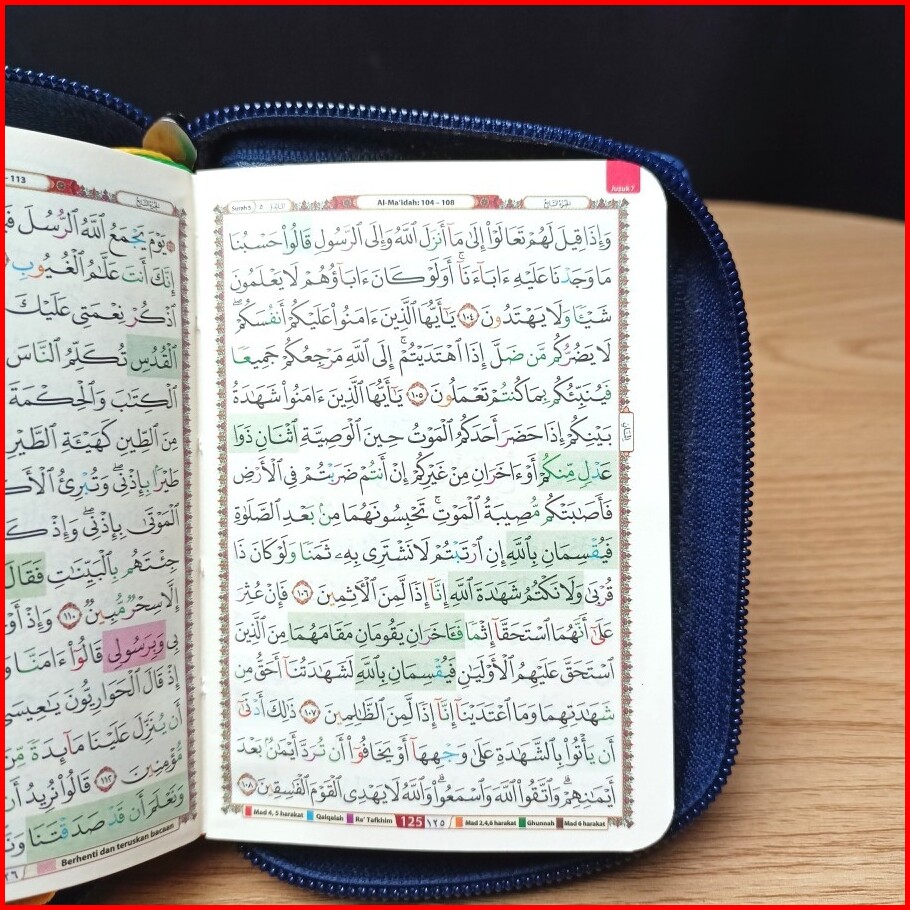 Juzuk 7
Surah 5 ٥ المائدة
Al-Ma'idah: 104 – 108
الجزء السابع
وَإِذَا قِيلَ لَهُمْ تَعَالَوْا۟ إِلَىٰ مَآ أَنزَلَ ٱللَّهُ وَإِلَى ٱلرَّسُولِ قَالُوا۟ حَسْبُنَا
مَا وَجَدْنَا عَلَيْهِ ءَابَآءَنَآ ۚ أَوَلَوْ كَانَ ءَابَآؤُهُمْ لَا يَعْلَمُونَ
شَيْـًٔا وَلَا يَهْتَدُونَ ١٠٤ يَـٰٓأَيُّهَا ٱلَّذِينَ ءَامَنُوا۟ عَلَيْكُمْ أَنفُسَكُمْ ۖ
لَا يَضُرُّكُم مَّن ضَلَّ إِذَا ٱهْتَدَيْتُمْ ۚ إِلَى ٱللَّهِ مَرْجِعُكُمْ جَمِيعًا
فَيُنَبِّئُكُم بِمَا كُنتُمْ تَعْمَلُونَ ١٠٥ يَـٰٓأَيُّهَا ٱلَّذِينَ ءَامَنُوا۟ شَهَـٰدَةُ
بَيْنِكُمْ إِذَا حَضَرَ أَحَدَكُمُ ٱلْمَوْتُ حِينَ ٱلْوَصِيَّةِ ٱثْنَانِ ذَوَا
عَدْلٍ مِّنكُمْ أَوْ ءَاخَرَانِ مِنْ غَيْرِكُمْ إِنْ أَنتُمْ ضَرَبْتُمْ فِى ٱلْأَرْضِ
فَأَصَـٰبَتْكُم مُّصِيبَةُ ٱلْمَوْتِ ۚ تَحْبِسُونَهُمَا مِنۢ بَعْدِ ٱلصَّلَوٰةِ
فَيُقْسِمَانِ بِٱللَّهِ إِنِ ٱرْتَبْتُمْ لَا نَشْتَرِى بِهِۦ ثَمَنًا وَلَوْ كَانَ ذَا
قُرْبَىٰ ۙ وَلَا نَكْتُمُ شَهَـٰدَةَ ٱللَّهِ إِنَّآ إِذًا لَّمِنَ ٱلْـَٔاثِمِينَ ١٠٦ فَإِنْ عُثِرَ
عَلَىٰٓ أَنَّهُمَا ٱسْتَحَقَّآ إِثْمًا فَـَٔاخَرَانِ يَقُومَانِ مَقَامَهُمَا مِنَ ٱلَّذِينَ
ٱسْتَحَقَّ عَلَيْهِمُ ٱلْأَوْلَيَـٰنِ فَيُقْسِمَانِ بِٱللَّهِ لَشَهَـٰدَتُنَآ أَحَقُّ مِن
شَهَـٰدَتِهِمَا وَمَا ٱعْتَدَيْنَآ إِنَّآ إِذًا لَّمِنَ ٱلظَّـٰلِمِينَ ١٠٧ ذَٰلِكَ أَدْنَىٰٓ
أَن يَأْتُوا۟ بِٱلشَّهَـٰدَةِ عَلَىٰ وَجْهِهَآ أَوْ يَخَافُوٓا۟ أَن تُرَدَّ أَيْمَـٰنٌۢ بَعْدَ
أَيْمَـٰنِهِمْ ۗ وَٱتَّقُوا۟ ٱللَّهَ وَٱسْمَعُوا۟ ۗ وَٱللَّهُ لَا يَهْدِى ٱلْقَوْمَ ٱلْفَـٰسِقِينَ ١٠٨
Mad 4, 5 harakat Qalqalah Ra' Tafkhim 125 ١٢٥ Mad 2,4,6 harakat Ghunnah Mad 6 harakat
– 113
الجزء السابع
يَوْمَ يَجْمَعُ ٱللَّهُ ٱلرُّسُلَ
إِنَّكَ أَنتَ عَلَّـٰمُ ٱلْغُيُوبِ
ٱذْكُرْ نِعْمَتِى عَلَيْكَ
ٱلْقُدُسِ تُكَلِّمُ ٱلنَّاسَ
ٱلْكِتَـٰبَ وَٱلْحِكْمَةَ
مِنَ ٱلطِّينِ كَهَيْـَٔةِ ٱلطَّيْرِ
طَيْرًۢا بِإِذْنِى ۖ وَتُبْرِئُ
ٱلْمَوْتَىٰ بِإِذْنِى ۖ وَإِذْ
جِئْتَهُم بِٱلْبَيِّنَـٰتِ فَقَالَ
إِلَّا سِحْرٌ مُّبِينٌ ١١٠ وَإِذْ
بِى وَبِرَسُولِى قَالُوٓا۟ ءَامَنَّا
إِذْ قَالَ ٱلْحَوَارِيُّونَ يَـٰعِيسَى
أَن يُنَزِّلَ عَلَيْنَا مَآئِدَةً مِّنَ
مُّؤْمِنِينَ ١١٢ قَالُوا۟ نُرِيدُ أَن
وَنَعْلَمَ أَن قَدْ صَدَقْتَنَا
Berhenti dan teruskan bacaan